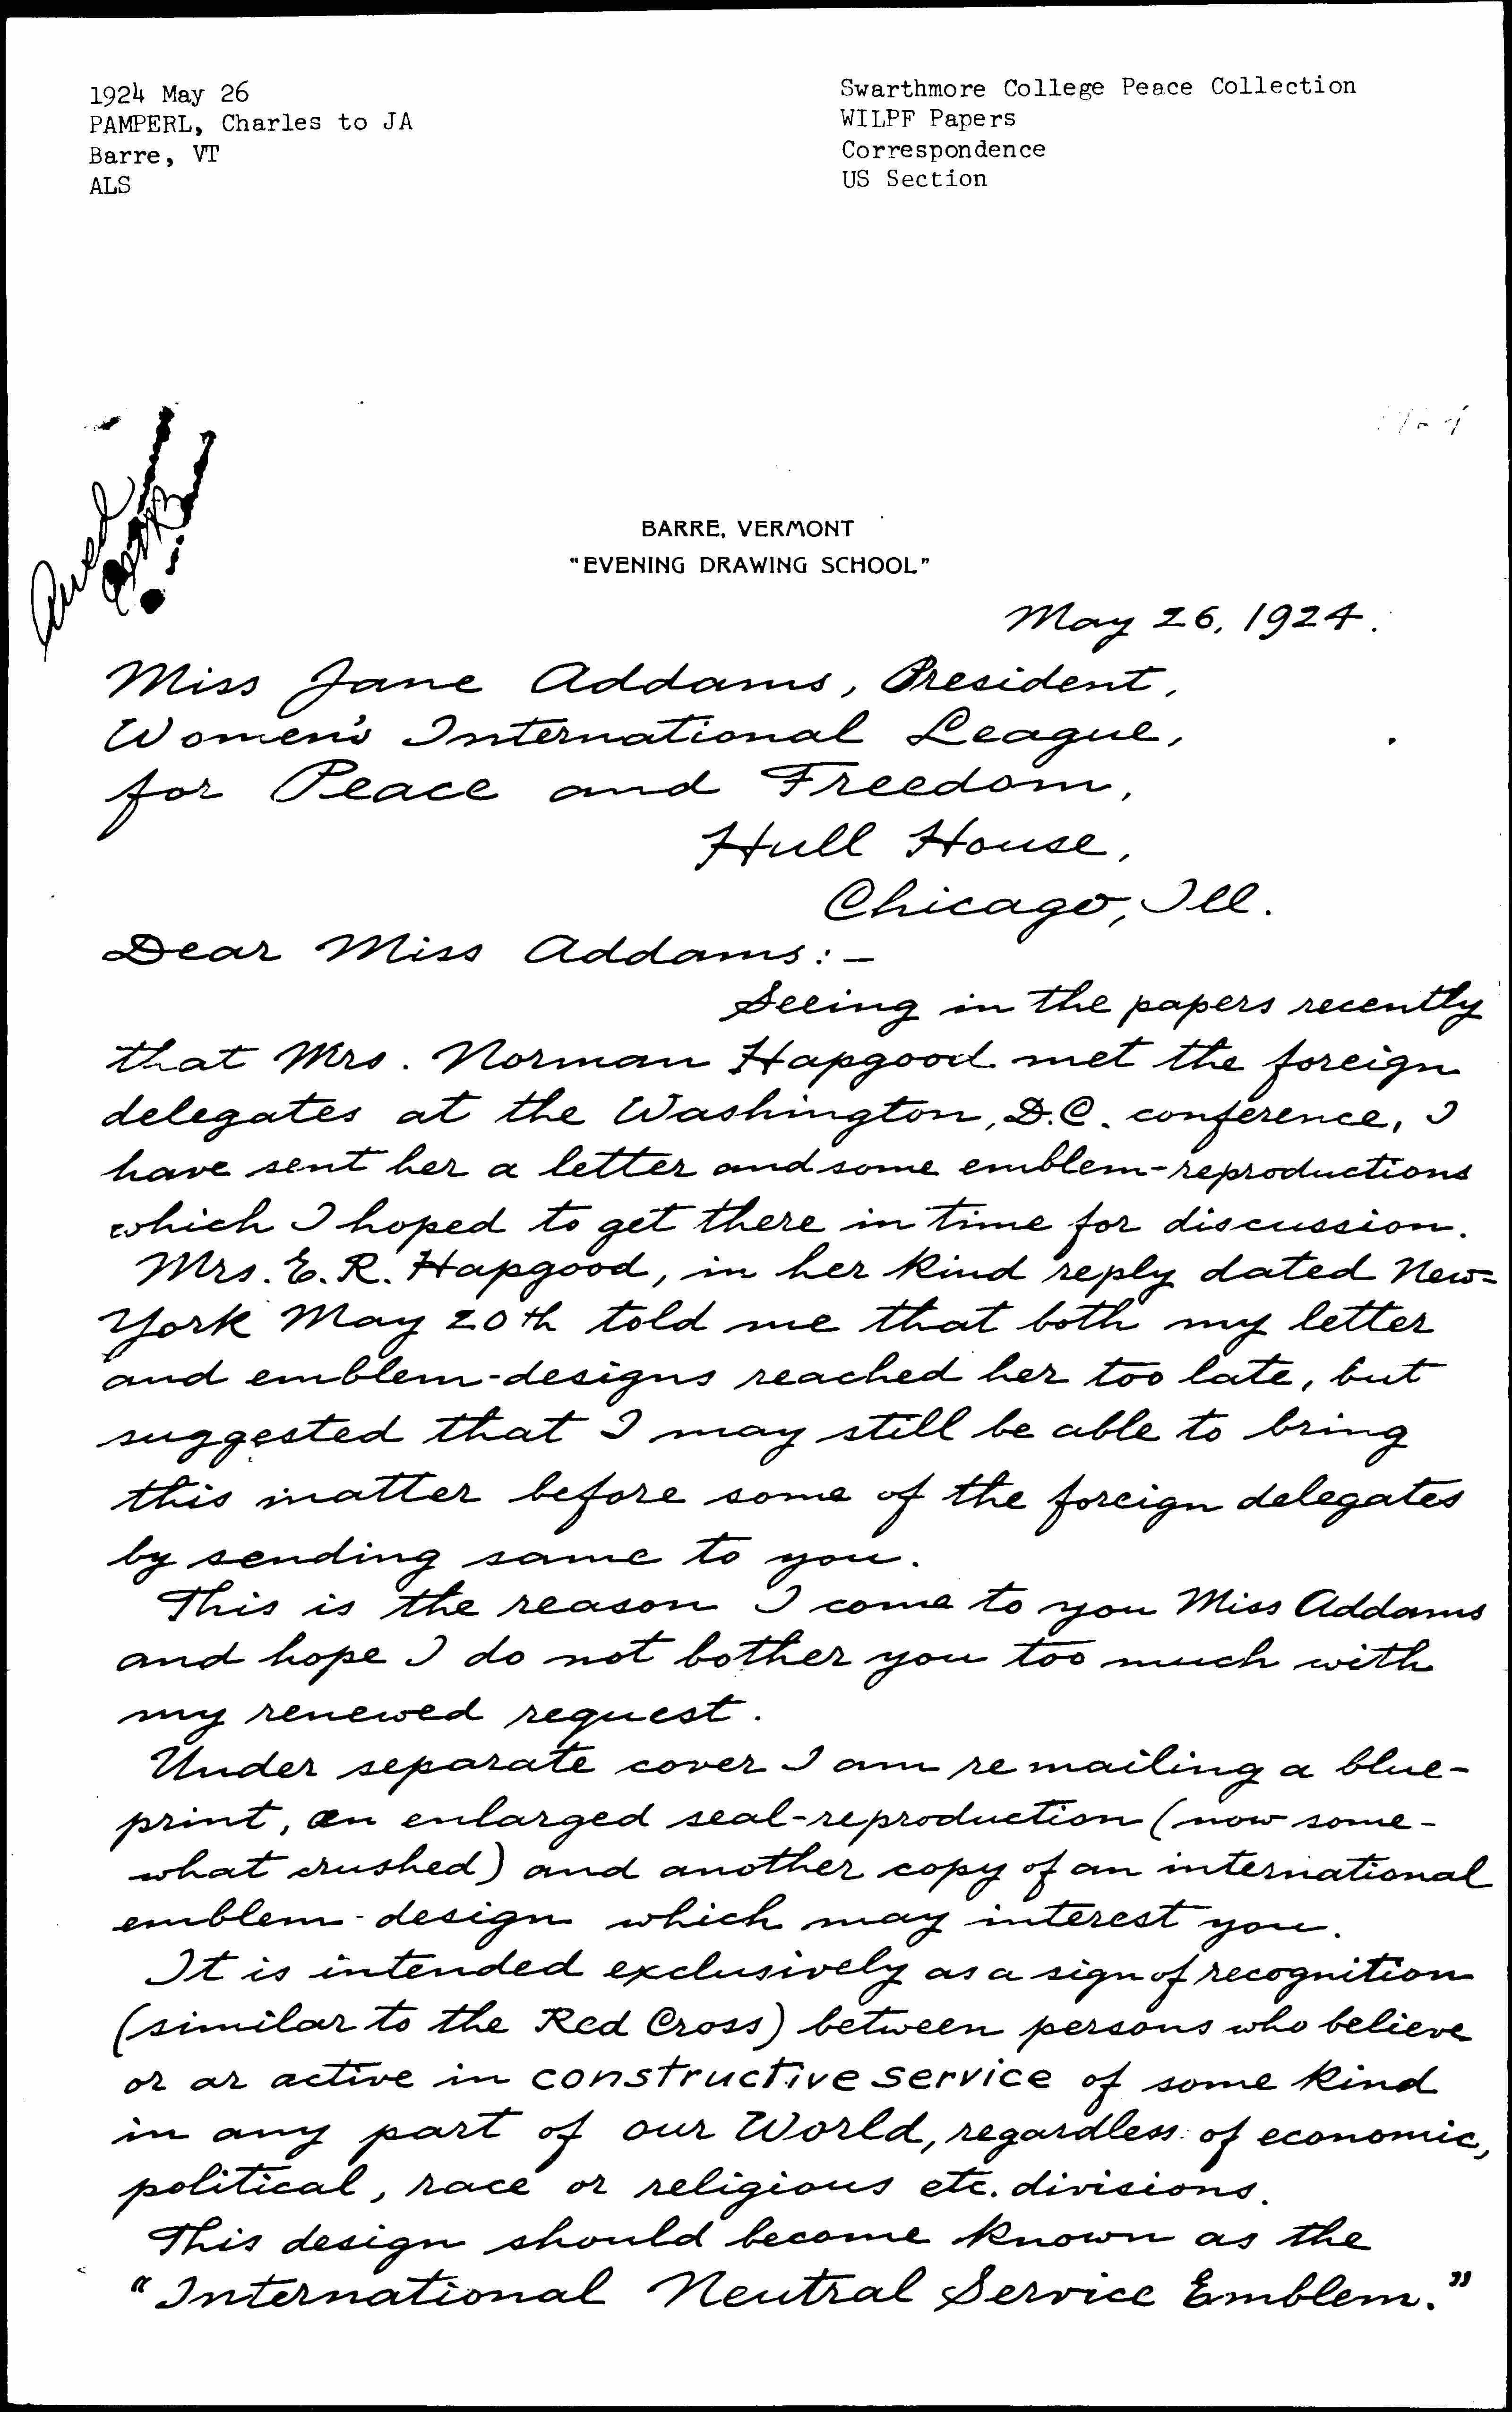 1924 May 26
PAMPERL, Charles to JA
Barre, VT
ALS
Swarthmore College Peace Collection
WILPF Papers
Correspondence
US Section
BARRE, VERMONT
"EVENING DRAWING SCHOOL"
May 26, 1924.
Miss Jane Addams, President,
Women's International League,
for Peace and Freedom,
Hull House,
Chicago, Ill.
Dear Miss Addams:-
Seeing in the papers recently
that Mrs. Norman Hapgood met the foreign
delegates at the Washington, D.C. conference, I
have sent her a letter and some emblem-reproductions
which I hoped to get there in time for discussion.
Mrs. E. R. Hapgood, in her kind reply dated New=
York May 20th told me that both my letter
and emblem-designs reached her too late, but
suggested that I may still be able to bring
this matter before some of the foreign delegates
by sending same to you.
This is the reason I come to you Miss Addams
and hope I do not bother you too much with
my renewed request.
Under separate cover I am remailing a blue-
print, an enlarged seal-reproduction (now some-
what crushed) and another copy of an international
emblem-design which may interest you.
It is intended exclusively as a sign of recognition
(similar to the Red Cross) between persons who believe
or ar active in constructive service of some kind
in any part of our World, regardless of economic,
political, race or religious etc. divisions.
This design should become known as the
"International Neutral Service Emblem."